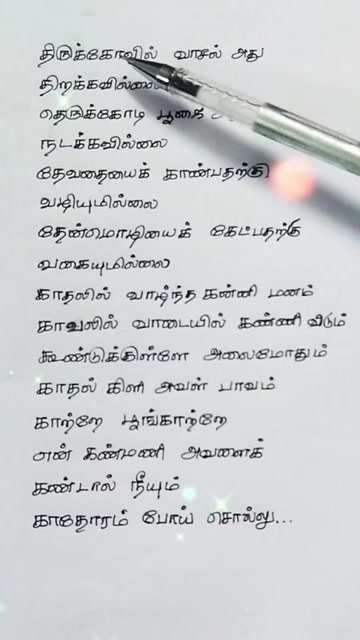 திருக்கோவில் வாசல் அது
திறக்கவில்லை
தெருக்கோடி பூஜை
நடக்கவில்லை
தேவதையைக் காண்பதற்கு
வழியுமில்லை
தேன்மொழியைக் கேட்பதற்கு
வகையுமில்லை
காதலில் வாழ்ந்த கன்னி மனம்
காவலில் வாடையில் கண்ணி விடும்
கூண்டுக்குள்ளே அலைமோதும்
காதல் கிளி அவள் பாவம்
காற்றே பூங்காற்றே
என் கண்மணி அவளைக்
கண்டால் நீயும்
காதோரம் போய் சொல்லு...